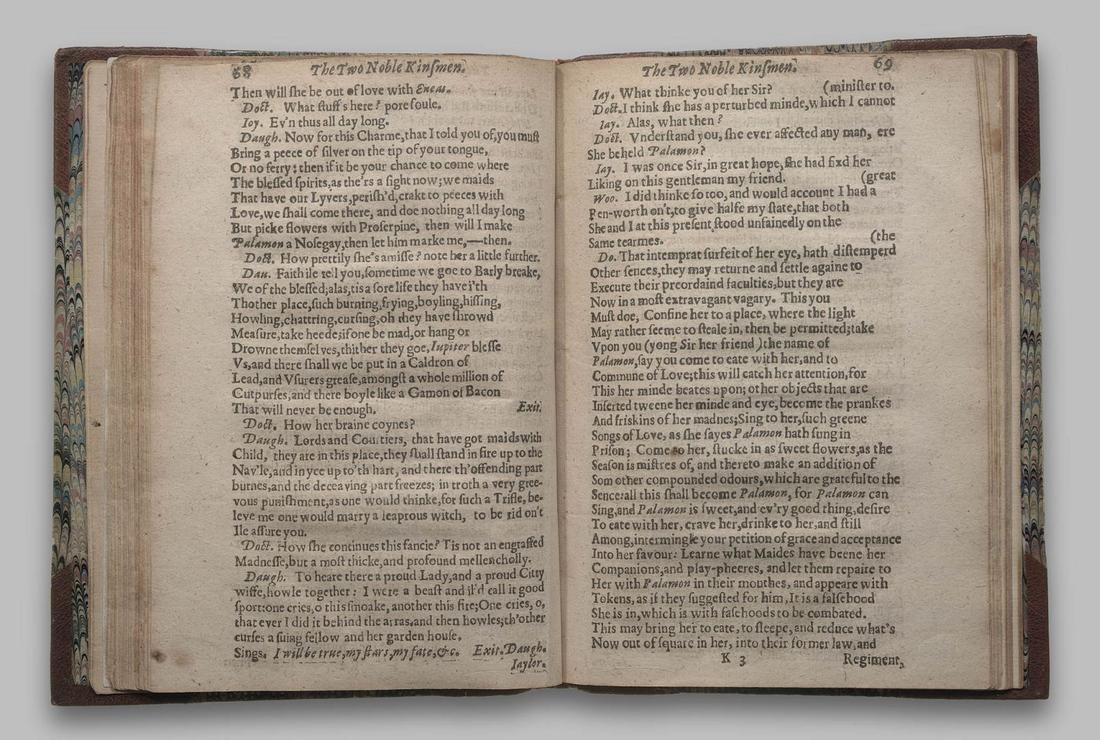 68 The Two Noble Kinſmen.
Then will ſhe be out of love with Eneas.
Doct. What ſtuff s here? pore ſoule.
Ioy. Ev'n thus all day long.
Daugh. Now for this Charme, that I told you of, you muſt
Bring a peece of ſilver on the tip of your tongue,
Or no ferry: then if it be your chance to come where
The bleſſed ſpirits, as the'rs a ſight now; we maids
That have our Lyvers, periſh'd, crakt to peeces with
Love, we ſhall come there, and doe nothing all day long
But picke flowers with Proſerpine, then will I make
Palamon a Noſegay, then let him marke me,—then.
Doct. How prettily ſhe's amiſſe? note her a little further.
Dau. Faith ile tell you, ſometime we goe to Barly breake,
We of the bleſſed; alas, tis a ſore life they have i'th
Thother place, ſuch burning, frying, boyling, hiſſing,
Howling, chattring, curſing, oh they have ſhrowd
Meaſure, take heede; if one be mad, or hang or
Drowne themſelves, thither they goe, Iupiter bleſſe
Vs, and there ſhall we be put in a Caldron of
Lead, and Vſurers greaſe, amongſt a whole million of
Cutpurſes, and there boyle like a Gamon of Bacon
That will never be enough. Exit.
Doct. How her braine coynes?
Daugh. Lords and Courtiers, that have got maids with
Child, they are in this place, they ſhall ſtand in fire up to the
Nav'le, and in yce up to'th hart, and there th'offending part
burnes, and the deceaving part freezes; in troth a very gree-
vous puniſhment, as one would thinke, for ſuch a Trifle, be-
leve me one would marry a leaprous witch, to be rid on't
Ile aſſure you.
Doct. How ſhe continues this fancie? Tis not an engraffed
Madneſſe, but a moſt thicke, and profound mellencholly.
Daugh. To heare there a proud Lady, and a proud Citty
wiffe, howle together: I were a beaſt and il'd call it good
ſport: one cries, o this ſmoake, another this fire; One cries, o,
that ever I did it behind the arras, and then howles; th'other
curſes a ſuing fellow and her garden houſe,
Sings. I will be true, my ſtars, my fate, &c. Exit. Daugh.
Iaylor.
The Two Noble Kinſmen. 69
Iay. What thinke you of her Sir? (miniſter to.
Doct. I think ſhe has a perturbed minde, which I cannot
Iay. Alas, what then?
Doct. Vnderſtand you, ſhe ever affected any man, ere
She beheld Palamon?
Iay. I was once Sir, in great hope, ſhe had fixd her
Liking on this gentleman my friend. (great
Woo. I did thinke ſo too, and would account I had a
Pen-worth on't, to give halfe my ſtate, that both
She and I at this preſent ſtood unfainedly on the
Same tearmes. (the
Do. That intemprat ſurfeit of her eye, hath diſtemperd
Other ſences, they may returne and ſettle againe to
Execute their preordaind faculties, but they are
Now in a moſt extravagant vagary. This you
Muſt doe, Confine her to a place, where the light
May rather ſeeme to ſteale in, then be permitted; take
Vpon you (yong Sir her friend) the name of
Palamon, ſay you come to eate with her, and to
Commune of Love; this will catch her attention, for
This her minde beates upon; other objects that are
Inſerted tweene her minde and eye, become the prankes
And friskins of her madnes; Sing to her, ſuch greene
Songs of Love, as ſhe ſayes Palamon hath ſung in
Priſon; Come to her, ſtucke in as ſweet flowers, as the
Seaſon is miſtres of, and thereto make an addition of
Som other compounded odours, which are grateful to the
Sence: all this ſhall become Palamon, for Palamon can
Sing, and Palamon is ſweet, and ev'ry good thing, deſire
To eate with her, crave her, drinke to her, and ſtill
Among, intermingle your petition of grace and acceptance
Into her favour: Learne what Maides have beene her
Companions, and play-pheeres, and let them repaire to
Her with Palamon in their mouthes, and appeare with
Tokens, as if they ſuggeſted for him, It is a falſehood
She is in, which is with faſehoods to be combated.
This may bring her to eate, to ſleepe, and reduce what's
Now out of ſquare in her, into their former law, and
K 3 Regiment,